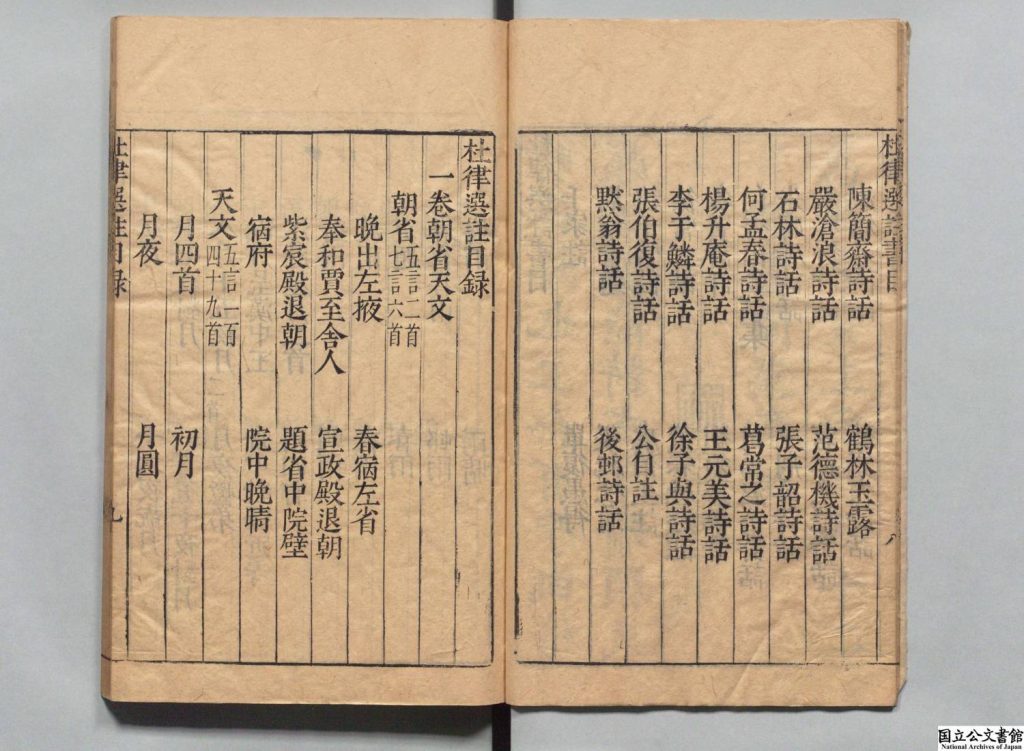 杜律選註書目
陳簡齋詩話 鶴林玉露
嚴滄浪詩話 范德機詩話
石林詩話 張子韶詩話
何孟春詩話 葛常之詩話
楊升庵詩話 王元美詩話
李于鱗詩話 徐子與詩話
張伯復詩話 公自註
默翁詩話 後邨詩話
八
杜律選註目録
一卷朝省天文
朝省五言二首七言六首
晩出左掖 春宿左省
奉和賈至舍人 宣政殿退朝
紫宸殿退朝 題省中院壁
宿府 院中晩晴
天文五言一百四十九首
月四首 初月
月夜 月圓
杜律選註目録
九
国立公文書館
National Archives of Japan